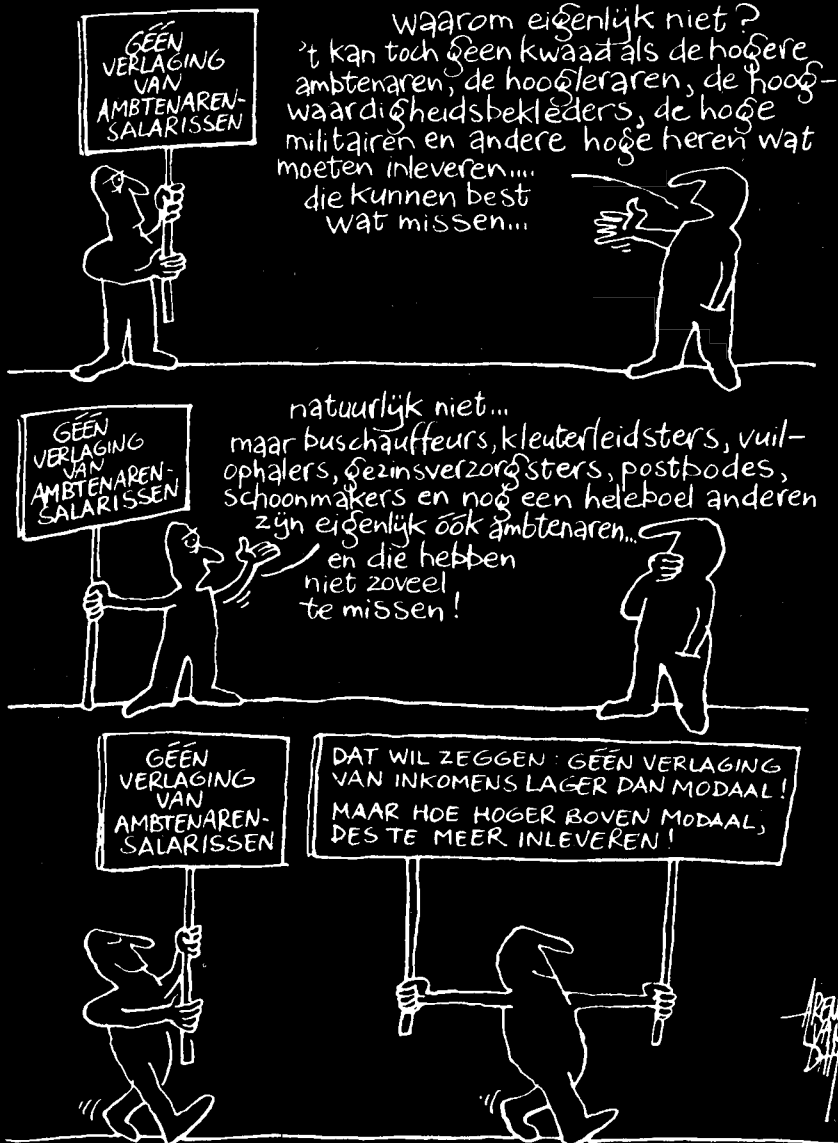 GÉÉN
VERLAGING
VAN
AMBTENAREN-
SALARISSEN
waarom eigenlijk niet?
't kan toch geen kwaad als de hogere
ambtenaren, de hoogleraren, de hoog-
waardigheidsbekleders, de hoge
militairen en andere hoge heren wat
moeten inleveren....
die kunnen best
wat missen...
GÉÉN
VERLAGING
VAN
AMBTENAREN-
SALARISSEN
natuurlijk niet...
maar buschauffeurs, kleuterleidsters, vuil-
ophalers, gezinsverzorgsters, postbodes,
schoonmakers en nog een heleboel anderen
zijn eigenlijk óók ambtenaren...
en die hebben
niet zoveel
te missen!
GÉÉN
VERLAGING
VAN
AMBTENAREN-
SALARISSEN
DAT WIL ZEGGEN: GÉÉN VERLAGING
VAN INKOMENS LAGER DAN MODAAL!
MAAR HOE HOGER BOVEN MODAAL,
DES TE MEER INLEVEREN!
VAN